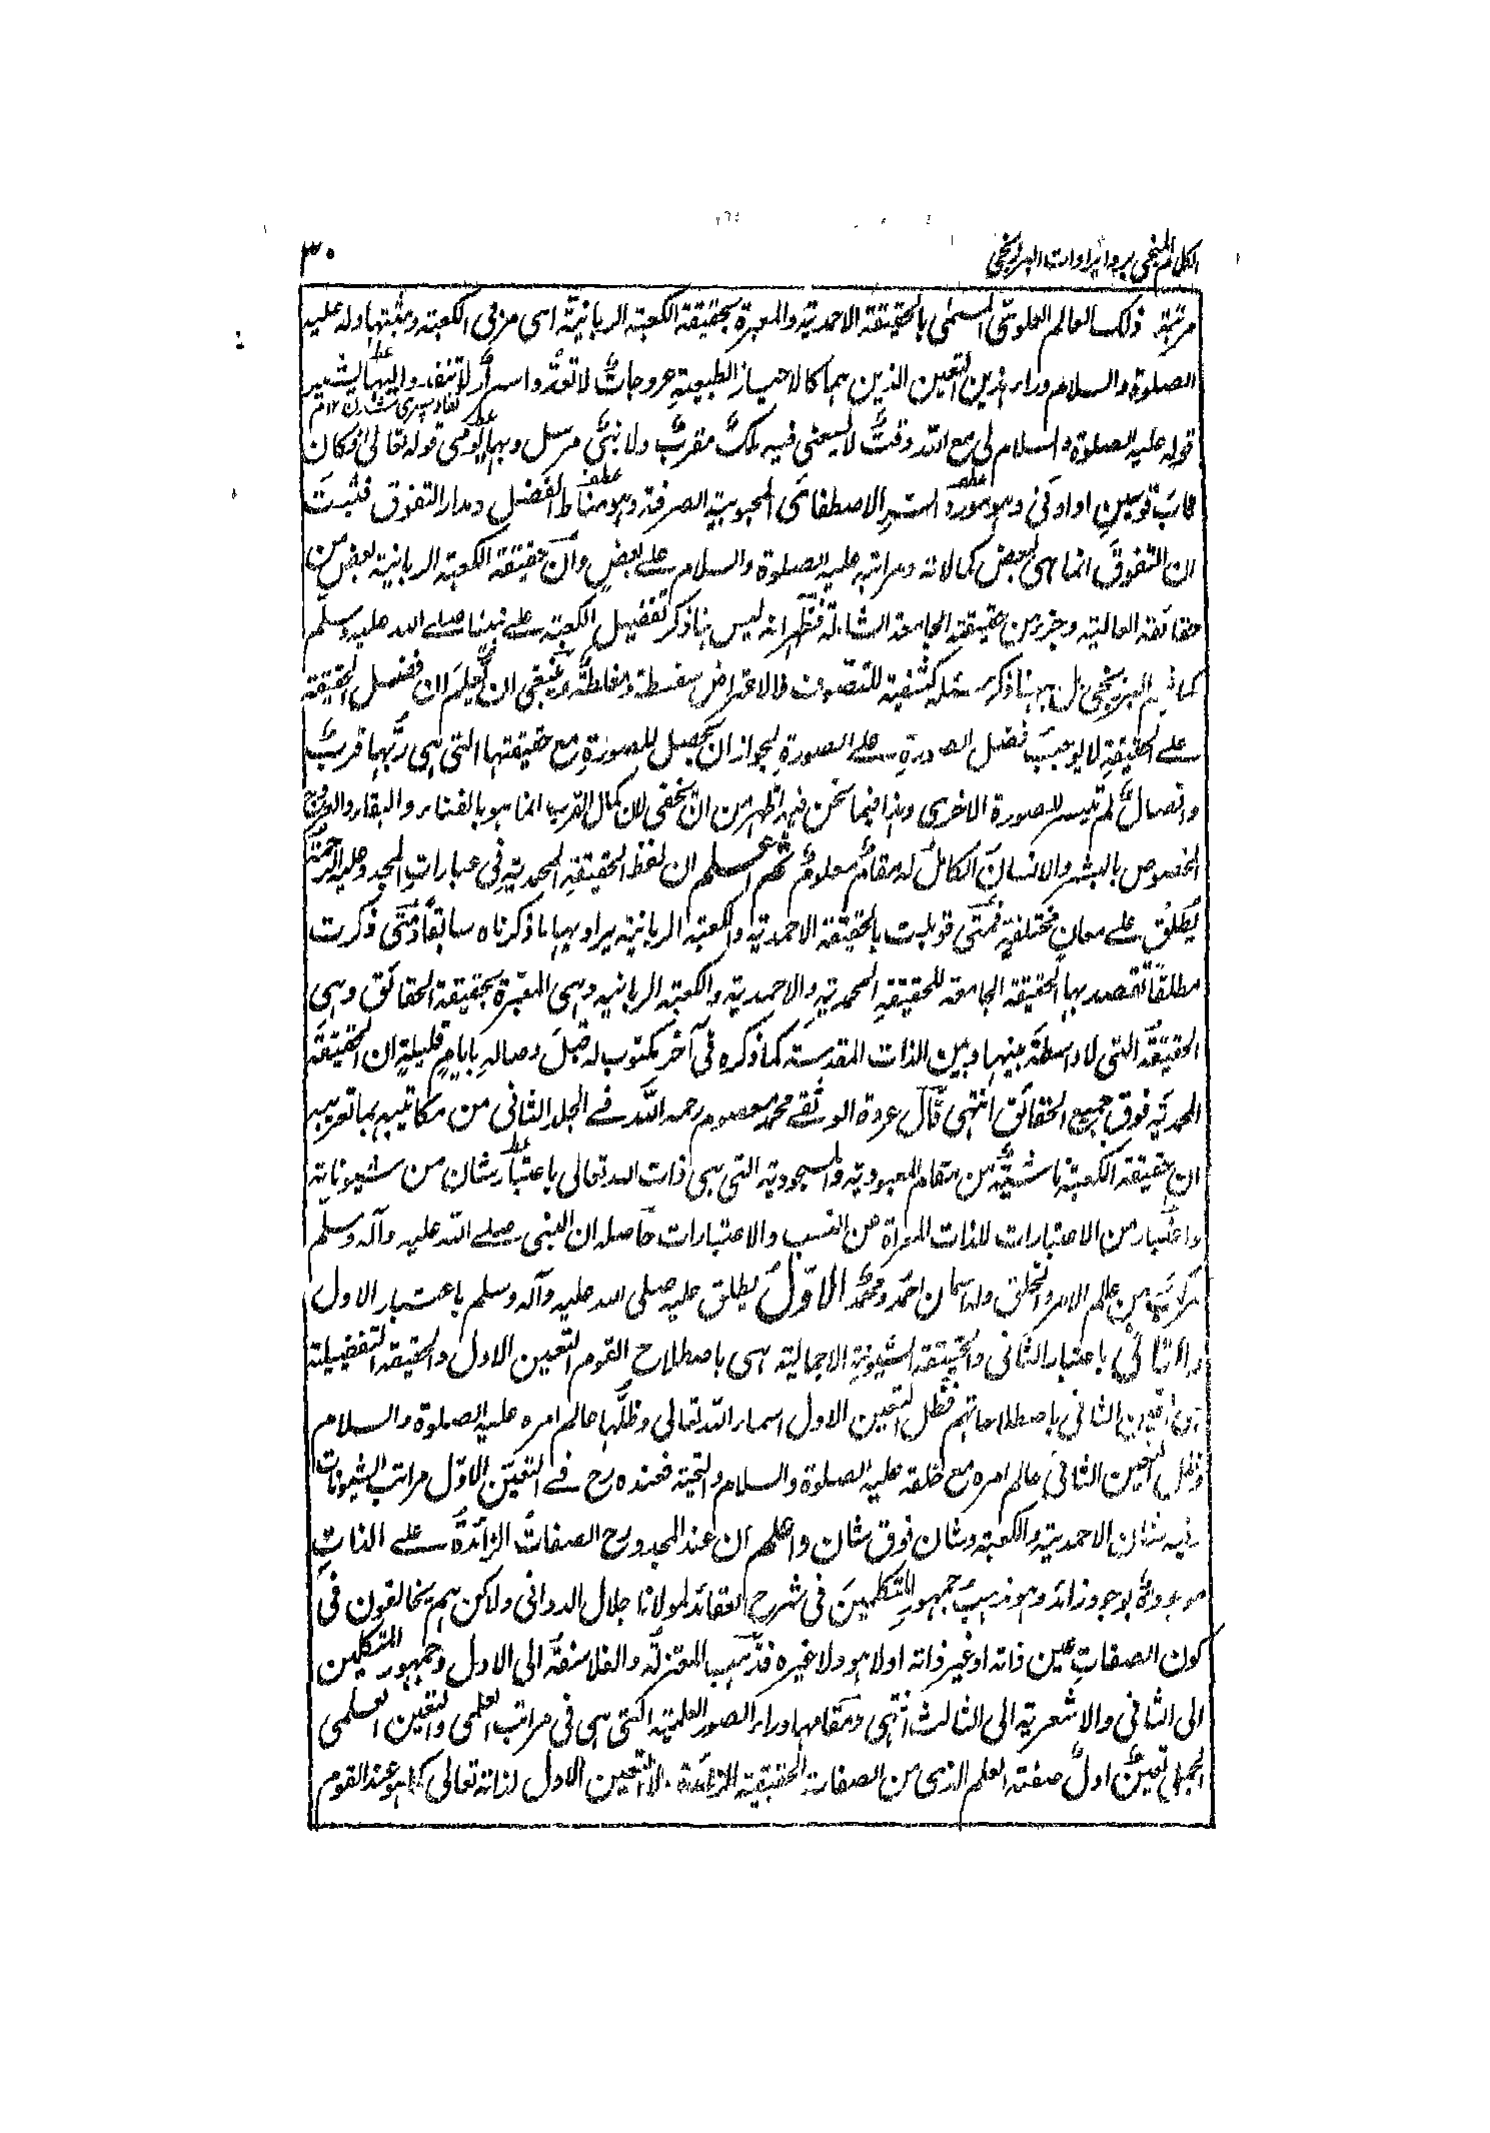 الكلام المنجى برد ايرادات البرزنجى
٣٠
مرتبة ذلك العالم العلوىّ المسمى بالحقيقة الاحمدية والمعبرة بحقيقة الكعبة الربانية اى مرقى الكعبة ومثبتها وله عليه
الصلوة والسلام وراء هذين التعين الذين هما كالاحياز الطبيعية عروجاتٌ لا تعدّ واسرارٌ لا تنفد واليها يشير
قوله عليه الصلوة والسلام لى مع الله وقتٌ لا يسعنى فيه ملكٌ مقربٌ ولا نبىٌّ مرسل وبها يومى قوله تعالى فكان
قاب قوسين او ادنى وهو مورد السير الاصطفائى المحبوبية الصرفة وهو مناط الفضل ومدار التفوق فثبت
ان التفوق انما هى لبعض كمالاته ومراتبه عليه الصلوة والسلام على بعضٍ وان حقيقة الكعبة الربانية بعض من
حقائقه العالية وجزء من حقيقته الجامعة الشاملة فظهر انه ليس هنا ذكر تفضيل الكعبة على نبينا صلى الله عليه وسلم
كما فهم البرزنجى بل ههنا ذكر مسئلة كشفية للتصوف فالاعتراض سفسطة ومغالطة وينبغى ان يعلم ان فضل الحقيقة
على الحقيقة لا يوجب فضل الصورة على الصورة لجواز ان يحصل للصورة مع حقيقتها التى هى ربّها قربٌ
واتصالٌ لم تيسر للصورة الاخرى وهذا فيما نحن فيه اظهر من ان يخفى لان كمال القرب انما هو بالفناء والبقاء والعروج
المخصوص بالبشر والانسان الكامل له مقام معلوم ثم اعلم ان لفظ الحقيقة المحمدية فى عبارات المجدد عليه الرحمة
يطلق على معانٍ مختلفة فمتى قوبلت بالحقيقة الاحمدية والكعبة الربانية يراد بها ما ذكرناه سابقًا ومتى ذكرت
مطلقًا تقصد بها الحقيقة الجامعة للحقيقة المحمدية والاحمدية والكعبة الربانية وهى المعبّرة بحقيقة الحقائق وهى
الحقيقة التى لا واسطة بينها وبين الذات المقدسة كما ذكره فى آخر مكتوب له قبل وصاله بايام قليلة ان الحقيقة
المحمدية فوق جميع الحقائق انتهى قال عروة الوثقى محمد معصوم رحمه الله فى المجلد الثانى من مكاتيبه بما تعريبه
ان حقيقة الكعبة ناشئة من مقام المعبودية والمسجودية التى هى ذات الله تعالى باعتبار شان من شيوناته
واعتبار من الاعتبارات للذات المعراة عن النسب والاعتبارات حاصله ان النبى صلى الله عليه وآله وسلم
مركبٌ من عالم الامر والخلق وله اسمان احمد ومحمد الاوّل يطلق عليه صلى الله عليه وآله وسلم باعتبار الاول
والثانى باعتبار الثانى والحقيقة الشيونية الاجمالية هى باصطلاح القوم التعين الاول والحقيقة التفضيلية
هى التعين الثانى باصطلاحاتهم فظل التعين الاول اسماء الله تعالى وظلّها عالم امره عليه الصلوة والسلام
وظل التعين الثانى عالم امره مع خلقه عليه الصلوة والسلام والتحية فعنده رح فى التعين الاوّل مراتب الشيونات
فيه شان الاحمدية والكعبة وشان فوق شان واعلم ان عند المجدد رح الصفات الزائدة على الذات
موجودة بوجود زائد وهو مذهب جمهور المتكلمين فى شرح العقائد لمولانا جلال الدوانى ولاكن هم يخالفون فى
كون الصفات عين ذاته او غير ذاته او لا هو ولا غيره فذهب المعتزلة والفلاسفة الى الاول وجمهور المتكلمين
الى الثانى والاشعرية الى الثالث انتهى ومقامها وراء الصور العلمية التى هى فى مراتب العلمى والتعين العلمى
الجملى تعين اول صفة العلم الذى من الصفات الحقيقية الزائدة لا التعين الاول لذاته تعالى كما هو عند القوم